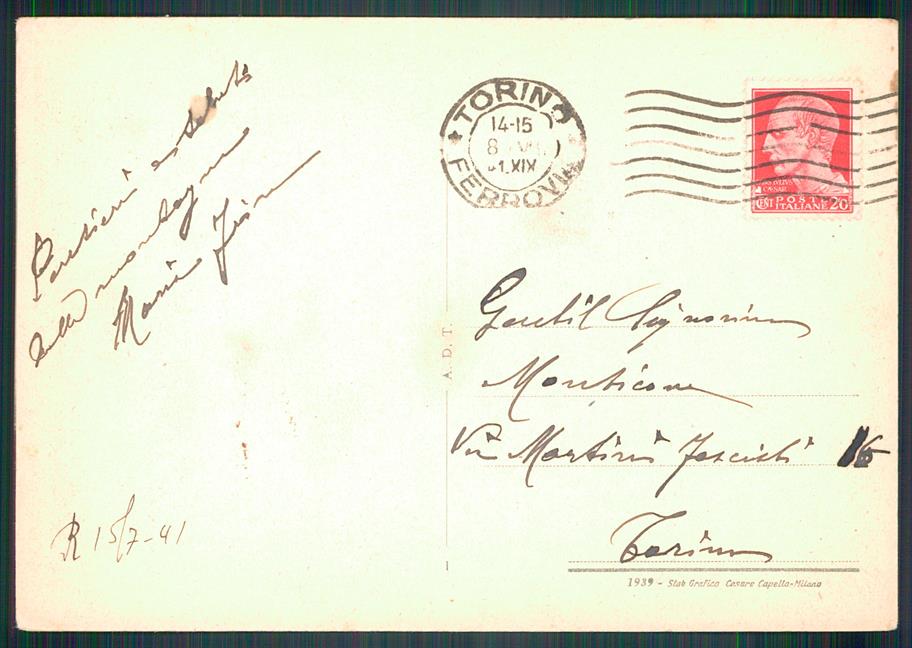 Pensieri e saluti
dalla montagna
Maria
R 15/7-41
A. D. T.
TORINO
14-15
8 VII
41 XIX
FERROVIA
IVLIVS
CAESAR
CENT POSTE ITALIANE 20
Gentil Signorina
Monticone
Via Martiri Fascisti 16
Torino
1939 - Stab Grafico Cesare Capello-Milano